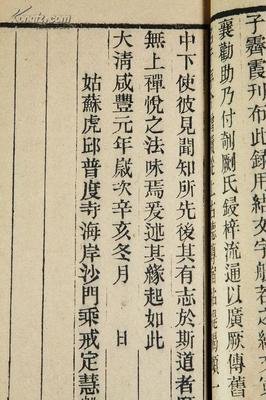 子霽霞刊布此録用結
襄勸助乃付剞劂氏鋟梓流通以廣厥傳舊
中下使彼見聞知所先後其有志於斯道者
無上禪悅之法味焉爰述其緣起如此
大清咸豐元年歲次辛亥冬月　日
姑蘇虎邱普度寺海岸沙門乘戒定慧